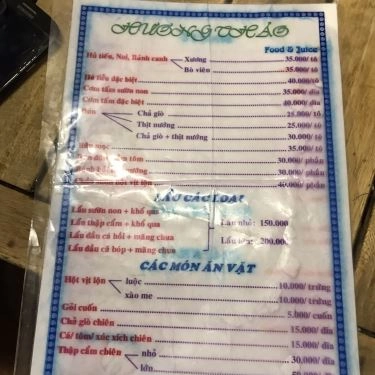 HƯƠNG THẢO
Food & Juice
Hủ tiếu, Nui, Bánh canh Xương 35.000/tô
Bò viên 35.000/tô
Hủ tiếu đặc biệt 40.000/tô
Cơm tấm sườn non 35.000/dĩa
Cơm tấm đặc biệt 40.000/dĩa
Bún Chả giò 25.000/tô
Thịt nướng 25.000/tô
Chả giò + thịt nướng 30.000/tô
mọc 35.000/tô
tôm 30.000/phần
30.000/phần
hột vịt lộn 40.000/phần
LẨU CÁC LOẠI
Lẩu sườn non + khổ qua
Lẩu thập cẩm + khổ qua Lẩu nhỏ: 150.000
Lẩu đầu cá hồi + măng chua
Lẩu đầu cá bóp + măng chua Lẩu lớn: 200.000
CÁC MÓN ĂN VẶT
Hột vịt lộn luộc 10.000/trứng
xào me 10.000/trứng
Gỏi cuốn 5.000/cuốn
Chả giò chiên 15.000/dĩa
Cá/ tôm/ xúc xích chiên 15.000/dĩa
Thập cẩm chiên nhỏ 30.000/dĩa
lớn